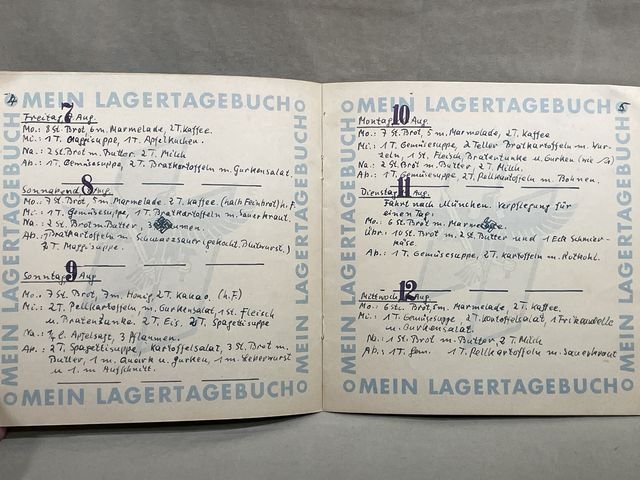 4
MEIN LAGERTAGEBUCH
MEIN LAGERTAGEBUCH
MEIN LAGERTAGEBUCH
7
Freitag, Aug.
Mo.: 8 St. Brot, 6 m. Marmelade, 2T. Kaffee.
Mi.: 1T. Maggisuppe, 1T. Apfelkuchen.
Na.: 2 St Brot m. Butter. 2T. Milch
Ab.: 1T. Gemüsesuppe, 2T. Bratkartoffeln m. Gurkensalat.
8
Sonnabend Aug.
Mo.: 7 St. Brot, 5 m. Marmelade. 2T. Kaffee (halb Feinbrot) h. F.
Mi.: 1T. Gemüsesuppe, 1T. Bratkartoffeln m. Sauerkraut.
Na.: 2 St Brot m. Butter, 3 Pflaumen.
Ab.: Bratkartoffeln m. Schwarzsauer (gekocht. Blutwurst.)
2T. Maggisuppe.
9
Sonntag, Aug
Mo.: 7 St. Brot, 7m. Honig, 2T. Kakao. (h.F.)
Mi.: 2T. Pellkartoffeln, m. Gurkensalat, 1St. Fleisch
u. Bratentunke. 2T. Eis. 2T. Spagettisuppe
Na.: l. Apfelsaft, 3 Pflaumen.
Ab.: 2T. Spagettisuppe, Kartoffelsalat, 3 St. Brot m.
Butter, 1 m. Quark u. Gurken, 1 m. Leberwurst
u. 1. m Aufschnitt.
MEIN LAGERTAGEBUCH
5
MEIN LAGERTAGEBUCH
MEIN LAGERTAGEBUCH
MEIN LAGERTAGEBUCH
10
Montag Aug.
Mo.: 7 St. Brot, 5 m. Marmelade, 2T. Kaffee
Mi.: 1T. Gemüsesuppe, 2 Teller Bratkartoffeln m. Wur-
zeln, 1 St. Fleisch, Bratentunke u. Gurken (nie
Na.: 2 St Brot m. Butter 2T. Milch.
Ab.: 1T. Gemüsesuppe, 2T. Pellkartoffeln m. Bohnen.
11
Dienstag Aug.
Fahrt nach München. Verpflegung für
einen Tag:
Mo: 6 St. Brot m. Marmelade.
Übr.: 10 St. Brot m. 2 St Butter und 1 Eck Schmier-
käse.
Ab.: 1T. Gemüsesuppe, 2T. Kartoffeln m. Rotkohl.
12
Mittwoch Aug.
Mo: 6 St. Brot, 5 m. Marmelade, 2T. Kaffee.
Mi.: 1T. Gemüsesuppe 2T. Kartoffelsalat 1 Frikandelle
u. Gurkensalat.
Na.: 1 St. Brot m. Butter, 2T. Milch
Ab.: 1T. Gem. 1T. Pellkartoffeln m. Sauerkraut
MEIN LAGERTAGEBUCH